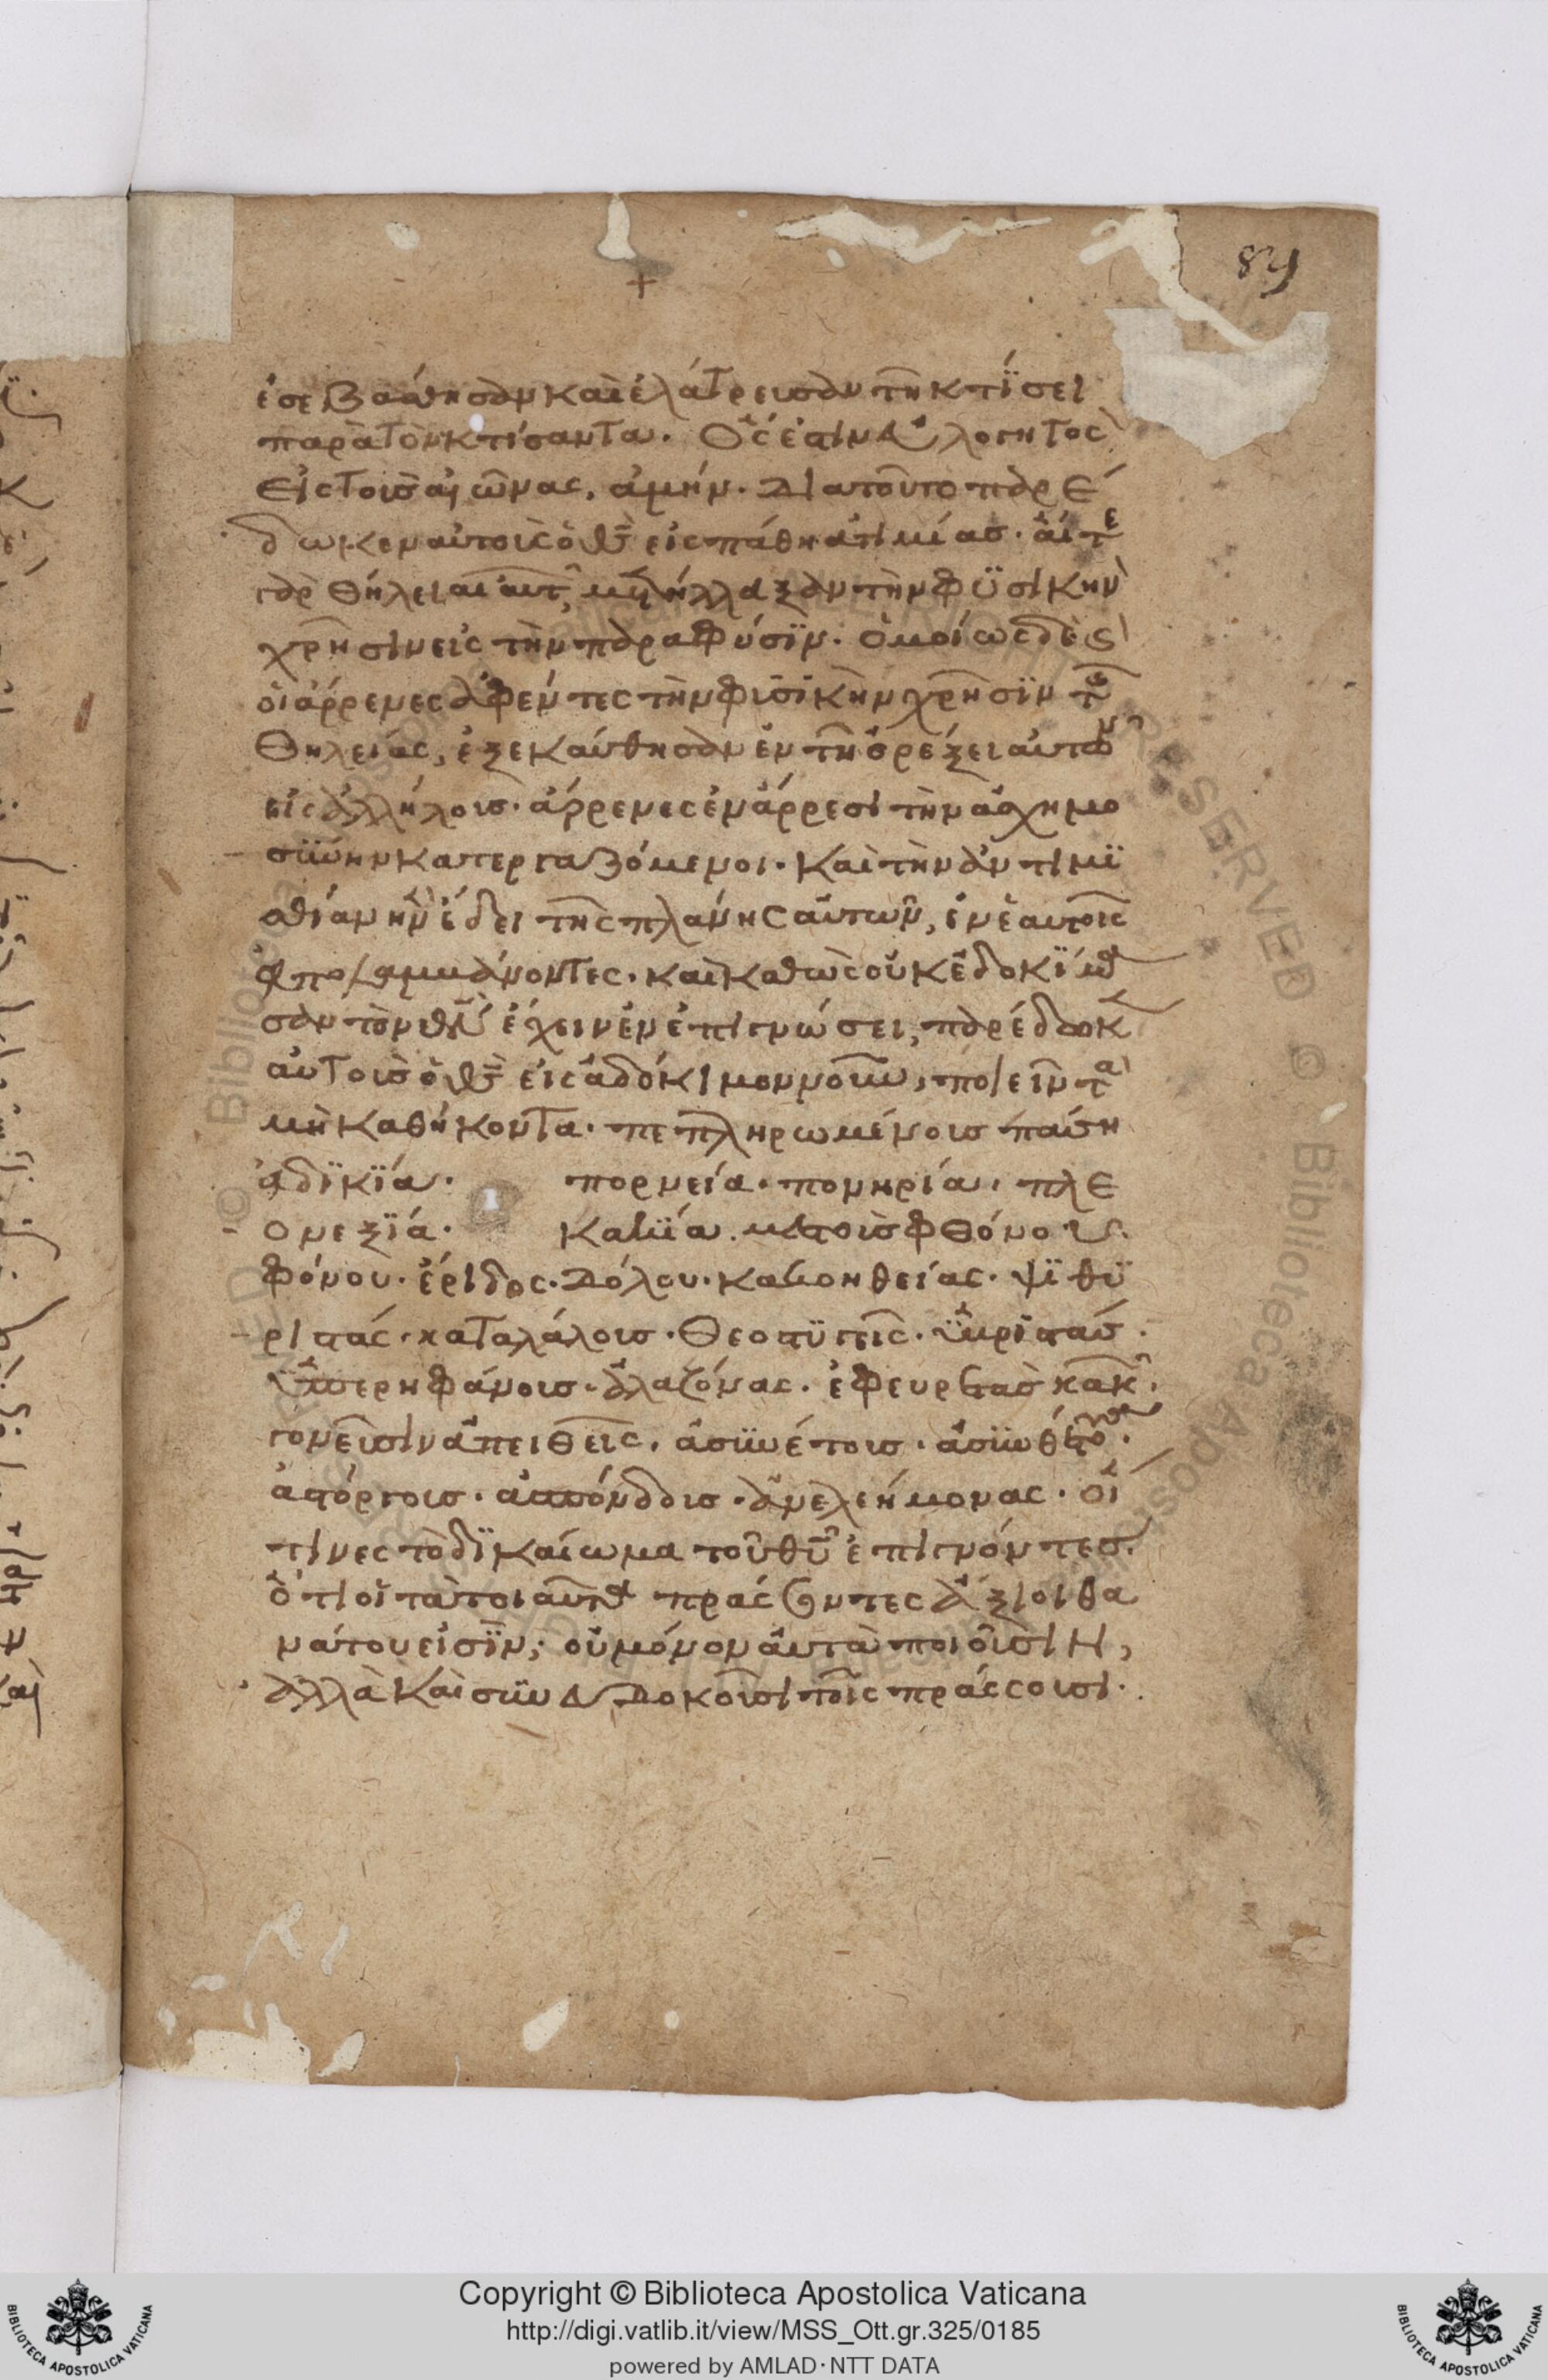 89
+
ἐσεβάσθησαν καὶ ἐλάτρευσαν τῆ κτΐσει
παρὰ τὸν κτίσαντα. Ὅς ἐστιν εὐλογητὸς
εἰς τοὺς αἰῶνας, ἀμήν. Διατοῦτο παρέ
δωκεν αὐτοὺς ὁ θς εἰς πάθη ἀτιμίας. αἵτε
γὰρ θήλειαι αὐτ μετήλλαξαν τὴν φϋσικὴν
χρῆσιν εἰς τὴν παραφύσϊν. ὁμοίως δὲ ϗ
οἱ ἄρρενες ἀφέντες τὴν φισικὴν χρῆσϊν τῆς
θηλείας, ἐξεκαύθησαν ἐν τῆ ὀρέξει αὐτῶν
εἰς ἀλλήλους. ἄρρενες ἐν ἄρρεσι τὴν ἀσχημο
σϋνην κατεργαζόμενοι. καὶ τὴν ἀντιμϊ
σθίαν ἣν ἔδει τῆς πλάνης αὐτῶν, ἐν ἑαυτοῖς
ἀπολαμμβάνοντες. καὶ καθὼς οὐκ ἐδοκΐμα
σαν τὸν θν ἔχειν ἐν ἐπιγνώσει, παρέδωκ
αὐτοὺς ὁ θς εἰς ἀδόκιμον νοῦν, ποιεῖν τὰ
μὴ καθήκοντα. πεπληρωμένους πάση
ἀδϊκϊά. πορνεία. πονηρία. πλε
ονεξϊά. κακία. μεστοὺς φθόνου.
φόνου. ἔριδος. δόλου. κακοηθείας. ψϊθϋ
ριστάς. καταλάλους. θεοστϋγεῖς. ϋβριστάς.
ϋπερηφάνους. ἀλαζόνας. ἐφευρετὰς κακ.
γονεῦσιν ἀπειθεῖς. ἀσϋνέτους. ἀσϋνθέτους.
ἀστόργους. ἀσπόνδους. ἀνελεήμονας. οἵ
τινες τὸ δϊκαίωμα τοῦ θυ ἐπιγνόντες.
ὅτι οἱ τὰ τοιαῦτα πράσσοντες ἄξιοι θα
νάτου εἰσΐν, οὐ μόνον αὐτὰ ποιοῦσιν,
ἀλλὰ καὶ σϋνευδοκοῦσι τοῖς πράσσουσι.
Copyright © Biblioteca Apostolica Vaticana
http://digi.vatlib.it/view/MSS_Ott.gr.325/0185
powered by AMLAD·NTT DATA
BIBLIOTECA APOSTOLICA VATICANA
BIBLIOTECA APOSTOLICA VATICANA